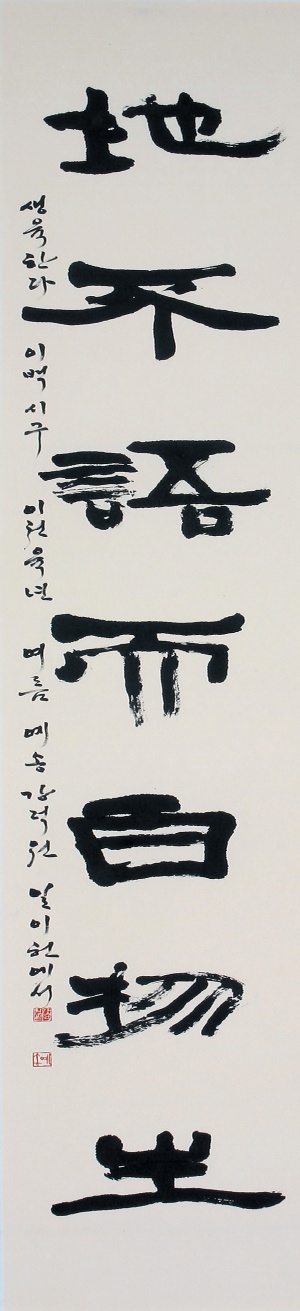 地不語而百物生
생육한다 이백 시구 이천육년 여름 예송 강덕원 일이헌에서